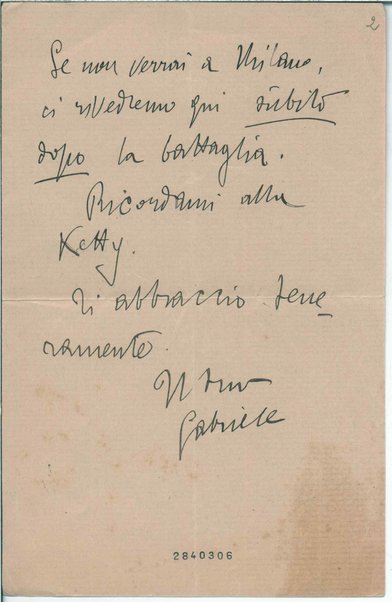 2
Se non verrai a Milano,
ci rivedremo qui subito
dopo la battaglia.
Ricordami alla
Ketty.
Ti abbraccio tene
ramente.
Il tuo
Gabriele
2840306